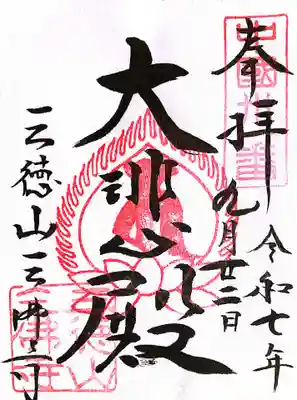 奉拝
令和七年
九月廿三日
大悲殿
三徳山三佛寺